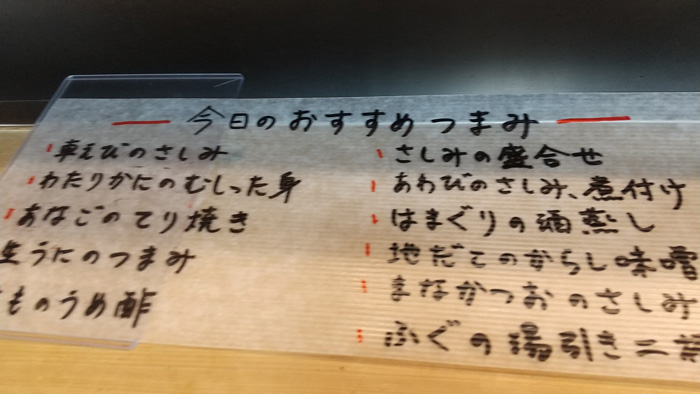 今日のおすすめつまみ
車えびのさしみ
わたりかにのむしった身
あなごのてり焼き
生うにのつまみ
ものうめ酢
さしみの盛合せ
あわびのさしみ、煮付け
はまぐりの酒蒸し
地だこのからし味噌
まながつおのさしみ
ふぐの湯引き二